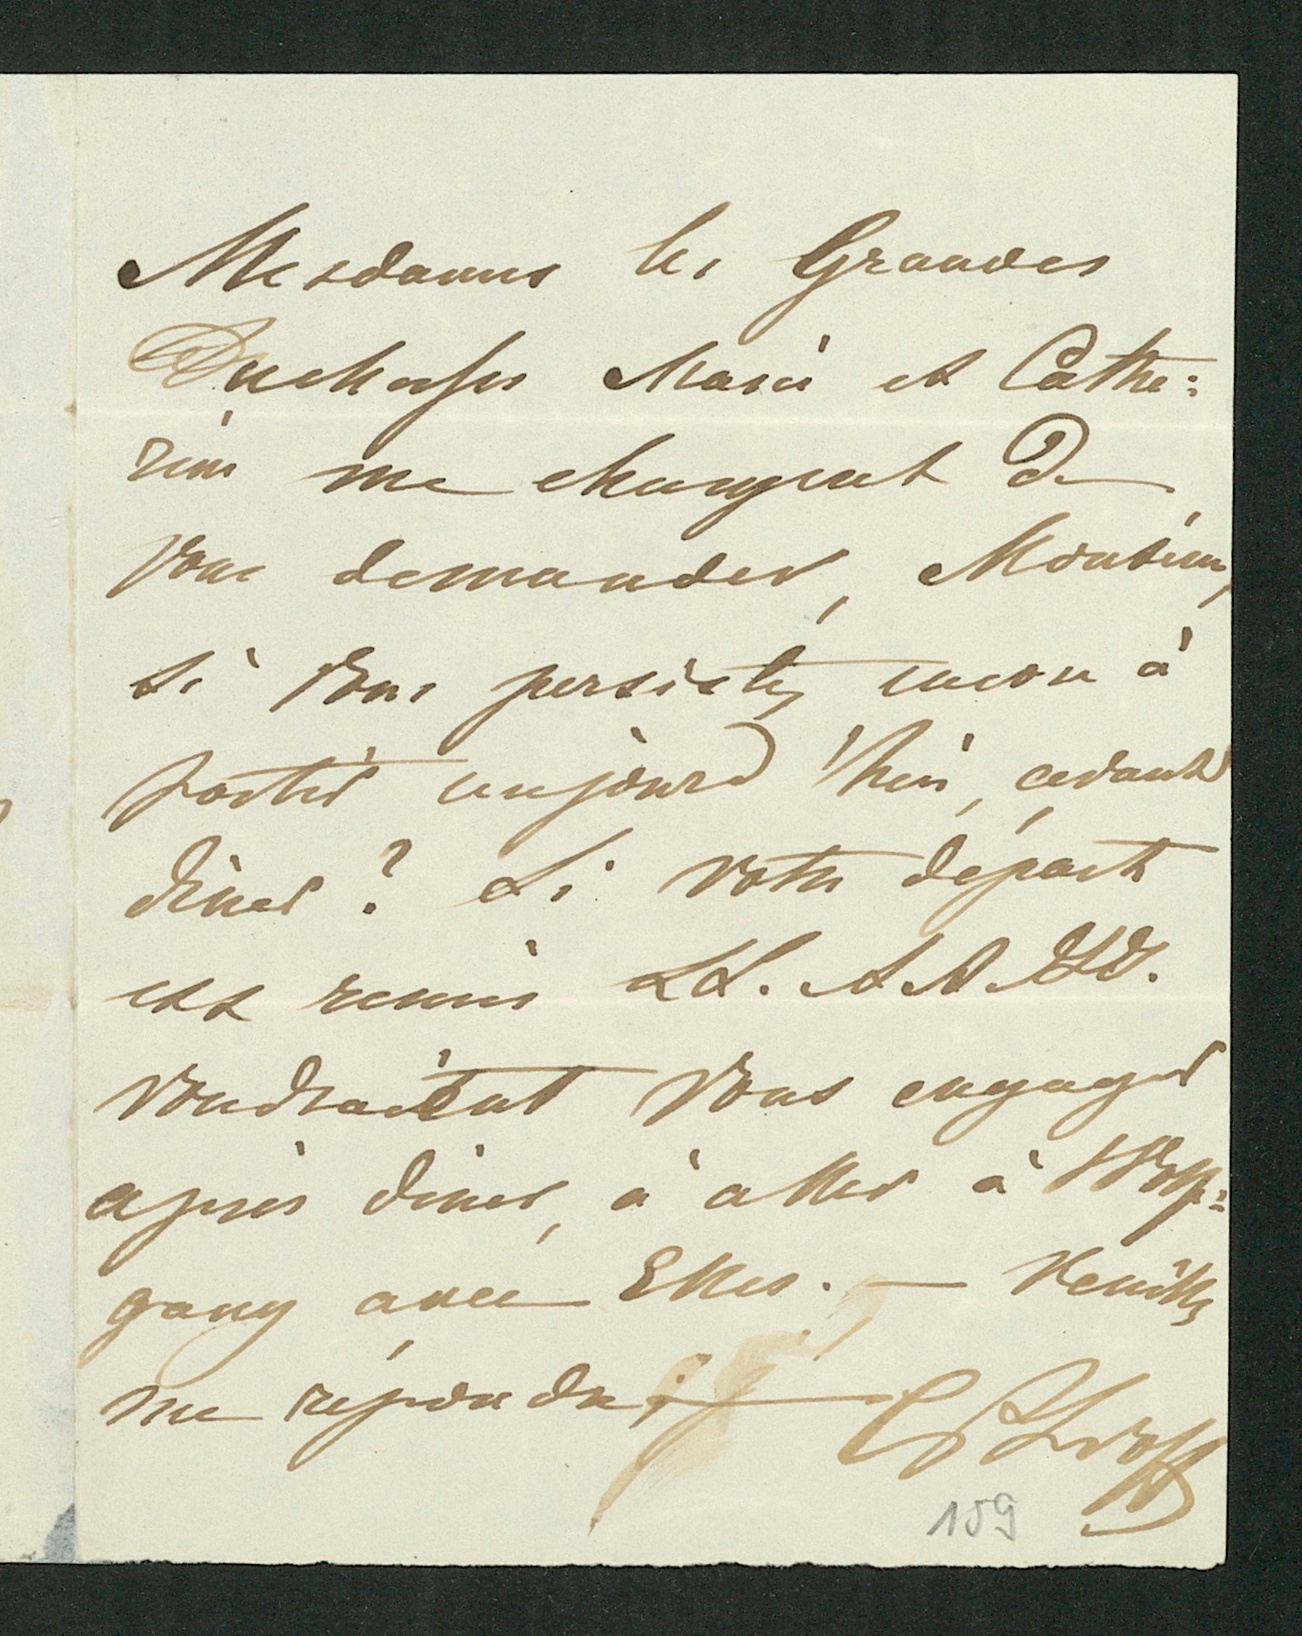 Mesdames les Grandes
Duchesses Marie et Cathe:
rine me chargent de
vous demander, Monsieur,
si Vous persistez encore à
partir aujourd'hui, avant
diner? Si votre départ
est remis LL. AA. II.
voudraient Vous engager
après diner, à aller à Wolf:
gang avec Elles. — Veuillez
me répondre;
159